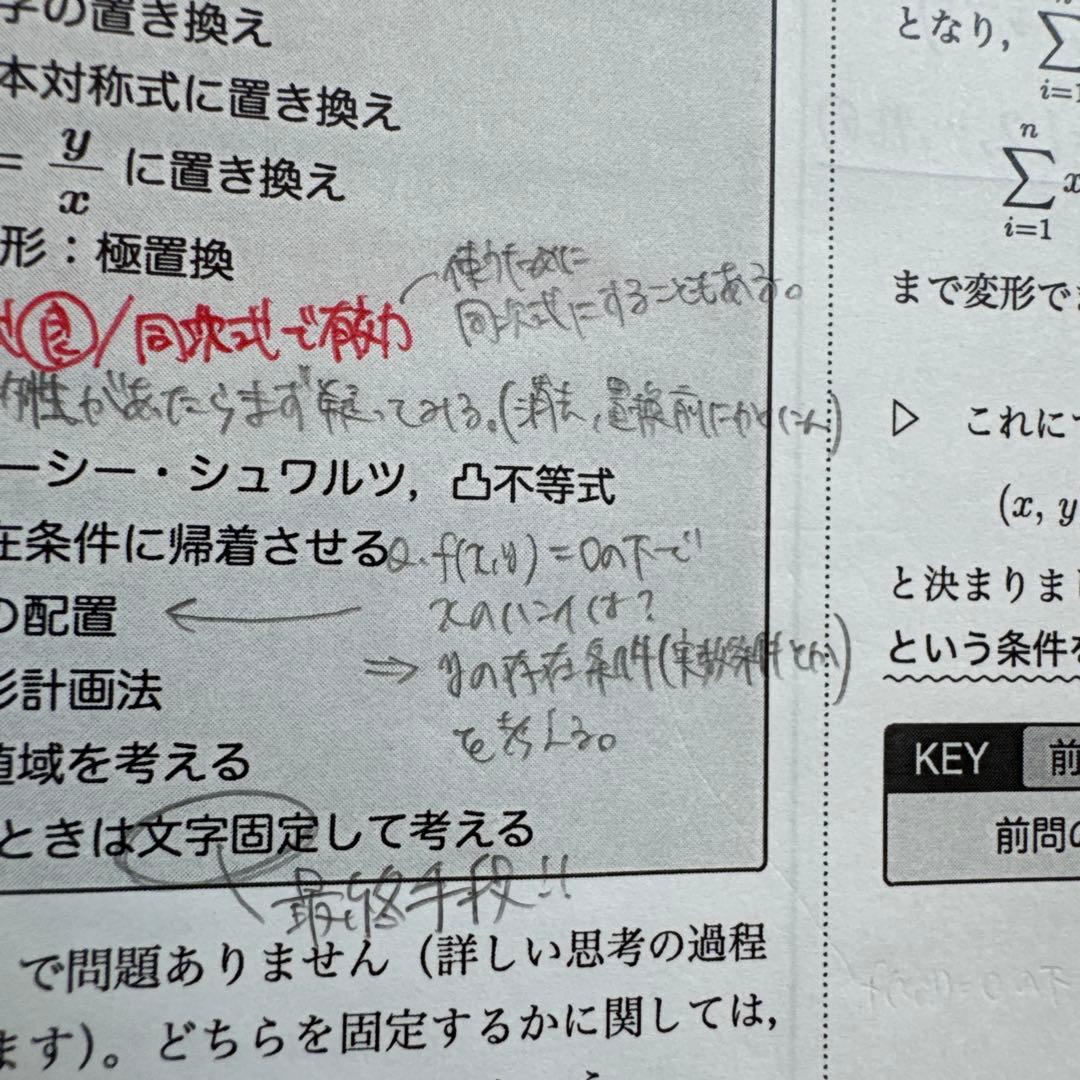 字の置き換え
本対称式に置き換え
= y/x に置き換え
形:極置換
使うために
同次式にすることもある。
良/同次式で有効
性があったらまず疑ってみる。(消去,置換前にかくにん)
ーシー・シュワルツ,凸不等式
在条件に帰着させる
Q. f(x,y)=0の下で
xのハンイは?
⇒ yの存在条件(実数条件とか)
を考える。
の配置
形計画法
値域を考える
ときは文字固定して考える
最終手段!!
で問題ありません(詳しい思考の過程
ます)。どちらを固定するかに関しては,
となり,∑
i=1
n
∑ x
i=1
まで変形で
▷ これに
(x, y
と決まりまし
という条件を
KEY 前
前問の